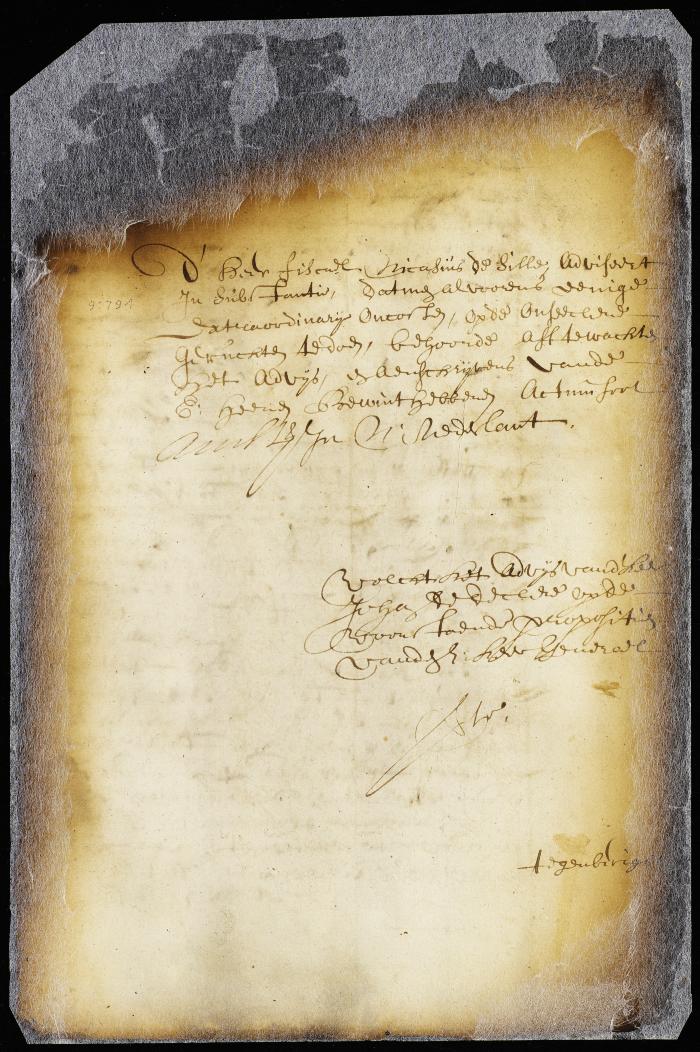 D' Heer fiscael Nicasius de Sille, adviseert
In substantie, dat men alvoorens eenige
extraordinary oncosten, op de onseeckere
geruchten te doen, behoorde aff te wachten
Het advys, en aenschryvens vande
E: heeren Bewinthebbers Actum fort
Amst: In N: Nederlant.
Volcht het advys vand' heer
Johan de deckere op de
voorstaende propositie
vande h: heer generael
9:794
tegenwoirige